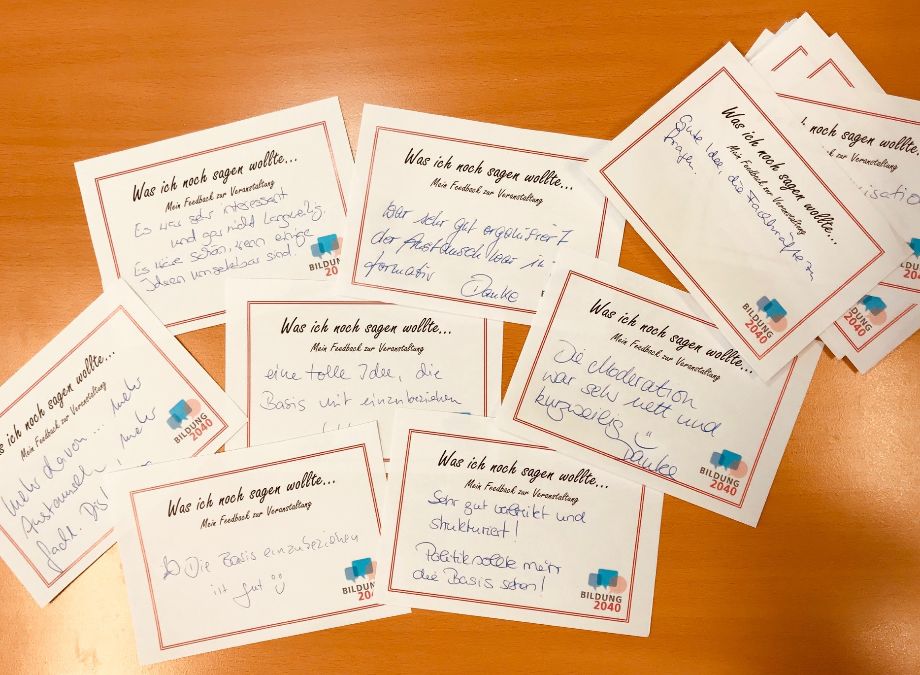 Was ich noch sagen wollte...
Mein Feedback zur Veranstaltung
Es war sehr interessant
und gar nicht langweilig.
Es wäre schön, wenn einige
Ideen umsetzbar sind.
BILDUNG
2040
Was ich noch sagen wollte...
Mein Feedback zur Veranstaltung
War sehr gut organisiert
der Austausch war in-
formativ
Danke
Was ich noch sagen wollte...
Mein Feedback zur Veranstaltung
Gute Idee, die Fachkräfte zu
fragen.
BILDUNG
2040
noch sagen wollte...
Feedback zur Veranstaltung
2040
Was ich noch sagen wollte...
Mein Feedback zur Veranstaltung
mehr davon... mehr
Austausch, mehr
BILDUNG
2040
Was ich noch sagen wollte...
Mein Feedback zur Veranstaltung
eine tolle Idee, die
Basis mit einzubeziehen
Was ich noch sagen wollte...
Mein Feedback zur Veranstaltung
Die Moderation
war sehr nett und
kurzweilig
Danke
BILDUNG
2040
Was ich noch sagen wollte...
Mein Feedback zur Veranstaltung
Die Basis einzubeziehen
ist gut
BILDUNG
Was ich noch sagen wollte...
Mein Feedback zur Veranstaltung
Sehr gut und
strukturiert!
Politik sollte mehr
die Basis sehen!
BILDUNG
2040